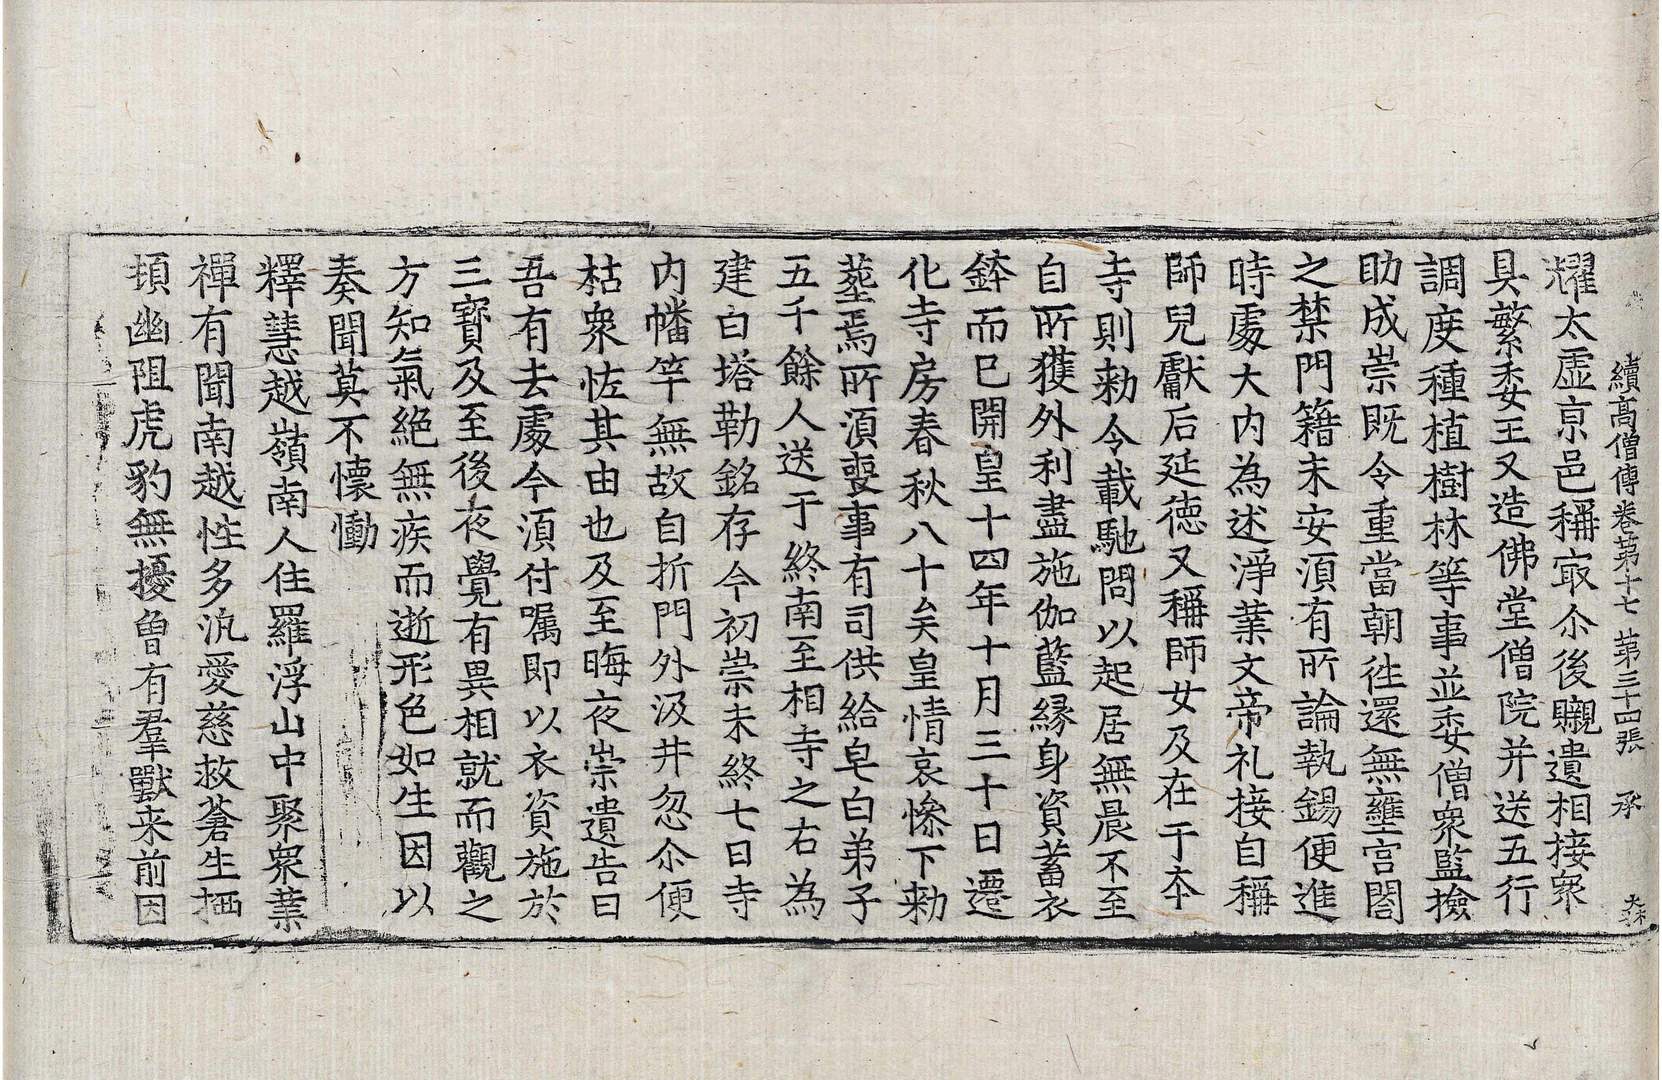 續高僧傳卷第十七　第三十四張　承
耀太虛京邑稱㝡尒後䞋遺相接衆
具繁委王又造佛堂僧院并送五行
調度種植樹林等事並委僧衆監撿
助成崇既令重當朝徃還無壅宮閤
之禁門籍未安湏有所論執錫便進
時處大内為述淨業文帝礼接自稱
師兒獻后延德又稱師女及在于夲
寺則勑令載馳問以起居無晨不至
自所獲外利盡施伽藍縁身資蓄衣
鉢而已開皇十四年十月三十日遷
化寺房春秋八十矣皇情哀慘下勑
塟焉所湏喪事有司供給皂白弟子
五千餘人送于終南至相寺之右為
建白塔勒銘存今初崇未終七日寺
内幡竿無故自折門外汲井忽尒便
枯衆恠其由也及至晦夜崇遺告曰
吾有去處今湏付嘱即以衣資施於
三寶及至後夜覺有異相就而觀之
方知氣絕無疾而逝形色如生因以
奏聞莫不懷慟
釋慧越嶺南人住羅浮山中聚衆業
禪有聞南越性多汎愛慈救蒼生栖
頓幽阻虎豹無擾曽有羣獸来前因